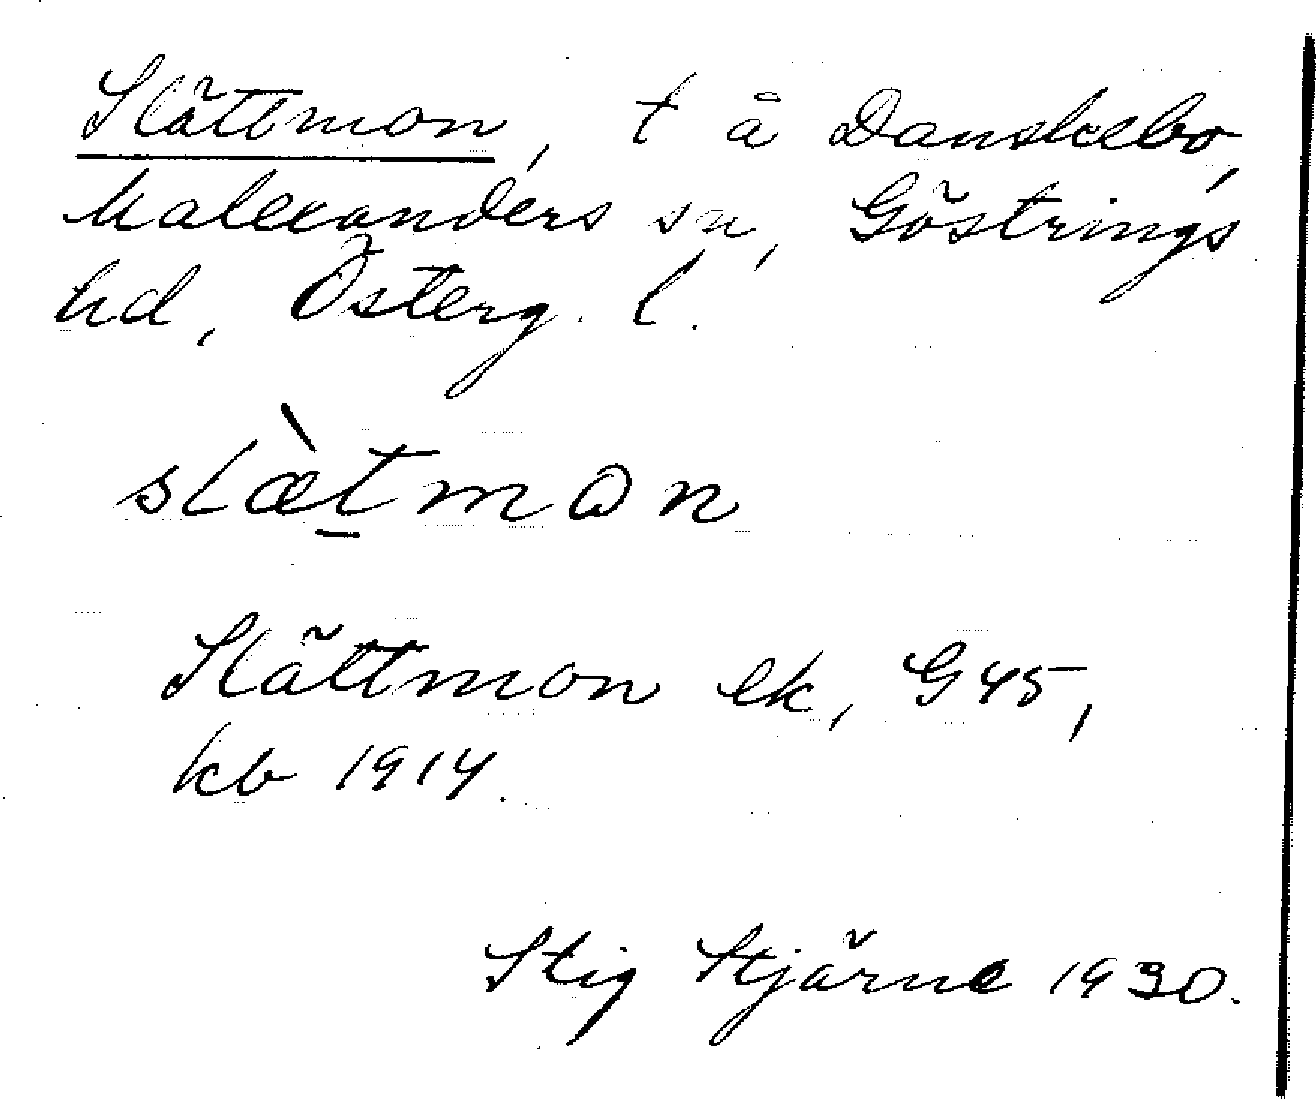 Slättmon, t å Danskebo,
Malexanders sn, Göstrings
hd, Österg. l.
slæ̀t̠mɷn
Slättmon ek, G45,
kb 1914.
Stig Stjärne 1930.